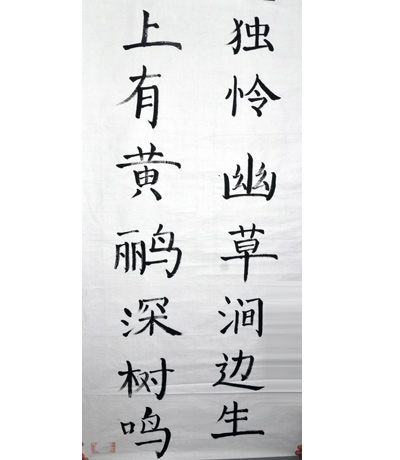 独怜幽草涧边生
上有黄鹂深树鸣